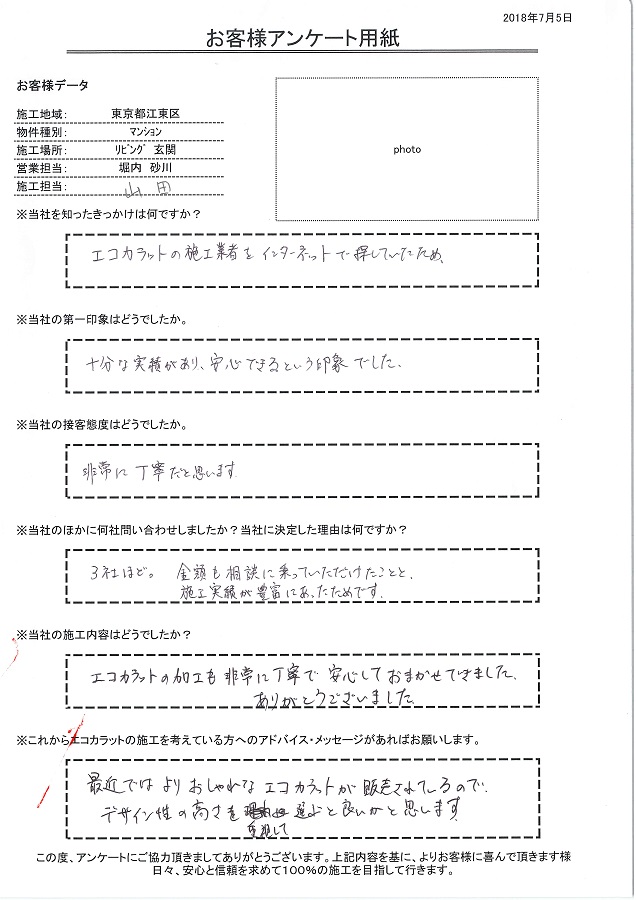 2018年7月5日
お客様アンケート用紙
お客様データ
施工地域： 東京都江東区
物件種別： ﾏﾝｼｮﾝ
施工場所： ﾘﾋﾞﾝｸﾞ 玄関
営業担当： 堀内 砂川
施工担当： 山田
photo
※当社を知ったきっかけは何ですか？
エコカラットの施工業者をインターネットで探していたため、
※当社の第一印象はどうでしたか。
十分な実績があり、安心できるという印象でした。
※当社の接客態度はどうでしたか。
非常に丁寧だと思います
※当社のほかに何社問い合わせしましたか？当社に決定した理由は何ですか？
3社ほど。 金額も相談に乗っていただけたことと、
施工実績が豊富にあったためです。
※当社の施工内容はどうでしたか？
エコカラットの加工も非常に丁寧で安心しておまかせできました。
ありがとうございました。
※これからエコカラットの施工を考えている方へのアドバイス・メッセージがあればお願いします。
最近ではよりおしゃれなエコカラットが販売されているので、
デザイン性の高さを 選ぶと良いかと思います
この度、アンケートにご協力頂きましてありがとうございます。上記内容を基に、よりお客様に喜んで頂きます様
日々、安心と信頼を求めて100％の施工を目指して行きます。